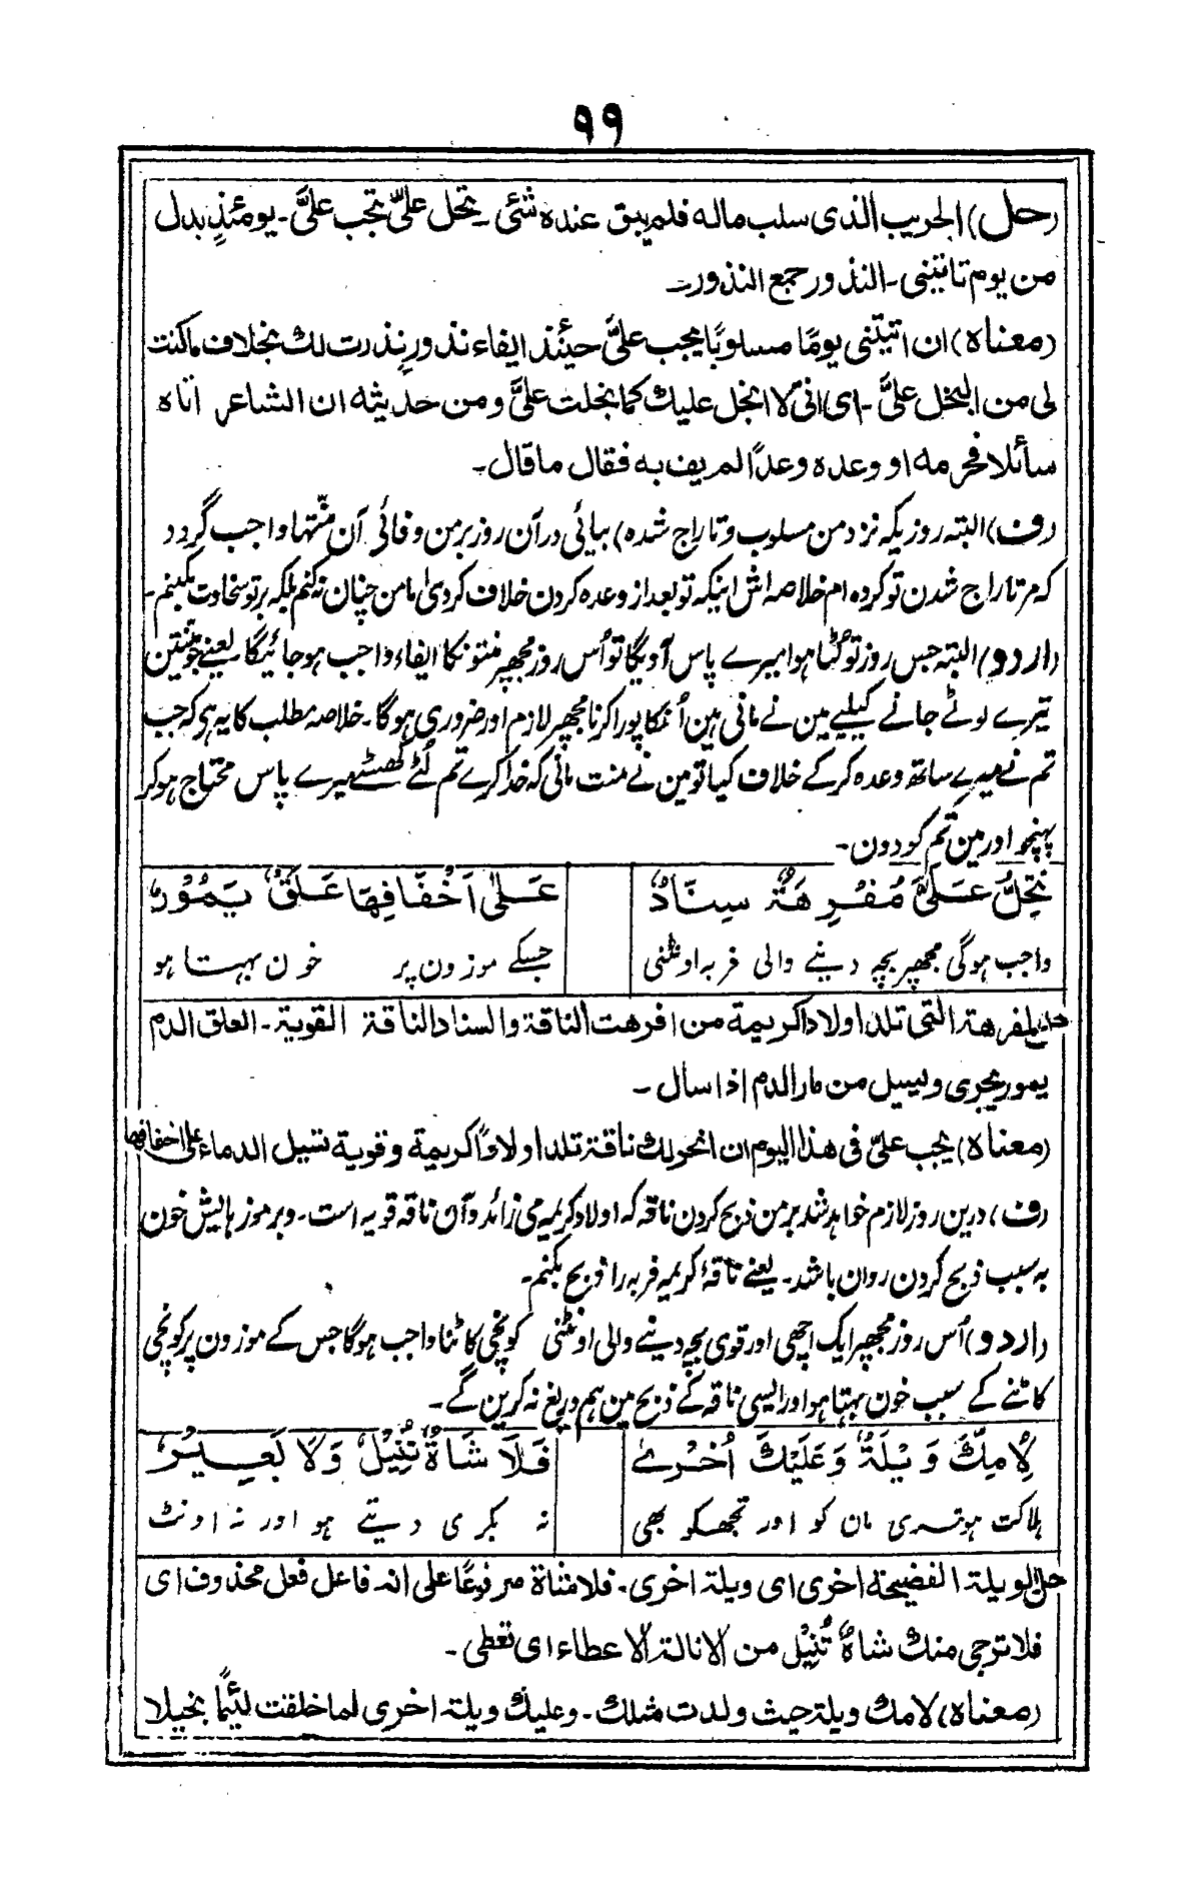 ۹۹
(حل) الحريب الذى سلب ماله فلم يبق عنده شئى۔ تحل علىّ تجب علىَّ۔ يومئذٍ بدل
من يوم تاتينى۔ النذور جمع النذور۔
(معناه) ان اتيتنى يومًا مسلوبًا يجب علىَّ حينئذ ايفاء نذورٍ نذرت لك بخلاف ما كنت
لى من البخل علىَّ۔ اى انى لا ابخل عليك كما بخلت علىَّ ومن حديثه ان الشاعر اتاه
سائلا فحرمه او وعده وعدًا لم يف به فقال ما قال۔
(ف) البته روزیکه نزد من مسلوب و تاراج شده) بیائی در آن روز بر من وفائی آن منّتها واجب گردد
که مر تاراج شدن تو کرده ام خلاصه اش اینکه تو بعد از وعده کردن خلاف کردی اما من چنان نه کنم بلکه بر تو سخاوت بکنم۔
(اردو) البتہ جس روز تو لُٹا ہوا میرے پاس آویگا تو اُس روز مجھپر منتونکا ایفاء واجب ہو جائیگا۔ یعنے جو منتین
تیرے لوٹے جانے کیلیے مین نے مانی ہین اُنکا پورا کرنا مجھپر لازم اور ضروری ہو گا۔ خلاصہ مطلب کا یہ ہی کہ جب
تم نے میرے ساتھ وعدہ کر کے خلاف کیا تو مین نے منت مانی کہ خدا کرے تم لُٹے گھسٹے میرے پاس محتاج ہو کر
پہنچو اور مین تم کو دون۔
تَحِلُّ عَلَىَّ مُفْرِهَةٌ سِنَادٌ عَلىٰ اَخْفَافِهَا عَلَقٌ يَمُوْرٌ
واجب ہو گی مجھپر بچہ دینے والی فربہ اونٹنی جسکے موزون پر خون بہتا ہو
حل المفرهة التى تلد اولادا كريمة من افرهت الناقة والسناد الناقة القوية۔ العلق الدم
يمور يجرى ويسيل من مار الدم اذا سال۔
(معناه) يجب علىّ فى هذا اليوم ان انحر لك ناقة تلد اولادًا كريمة وقوية تسيل الدماء على اخفافها
(ف) درین روز لازم خواهد شد بر من ذبح کردن ناقه که اولاد کریمه می زائد و آن ناقه قویه است۔ و بر موزهایش خون
به سبب ذبح کردن روان باشد۔ یعنے ناقهٔ کریمه فربه را ذبح بکنم۔
(اردو) اُس روز مجھپر ایک اچھی اور قوی بچہ دینے والی اونٹنی کونچی کاٹنا واجب ہوگا جس کے موزون پر کونچی
کاٹنے کے سبب خون بہتا ہو اور ایسی ناقہ کے ذبح مین ہم دریغ نہ کرین گے۔
لِاُمِّكَ وَيْلَةٌ وَعَلَيْكَ اُخْرٰى فَلَا شَاةٌ تُنِيْلُ وَلَا بَعِيْرٌ
ہلاکت ہو تیری مان کو اور تجھکو بھی نہ بکری دیتے ہو اور نہ اونٹ
حل الويلة الفضيحة اخرى اى ويلة اخرى۔ فلا شاة مرفوعًا على انه فاعل فعل محذوف اى
فلا ترجى منك شاةٌ تُنِيْل من الانالة الاعطاء اى تعطى۔
(معناه) لامك ويلة حيث ولدت مثلك۔ وعليك ويلة اخرى لما خلقت لئيمًا بخيلا